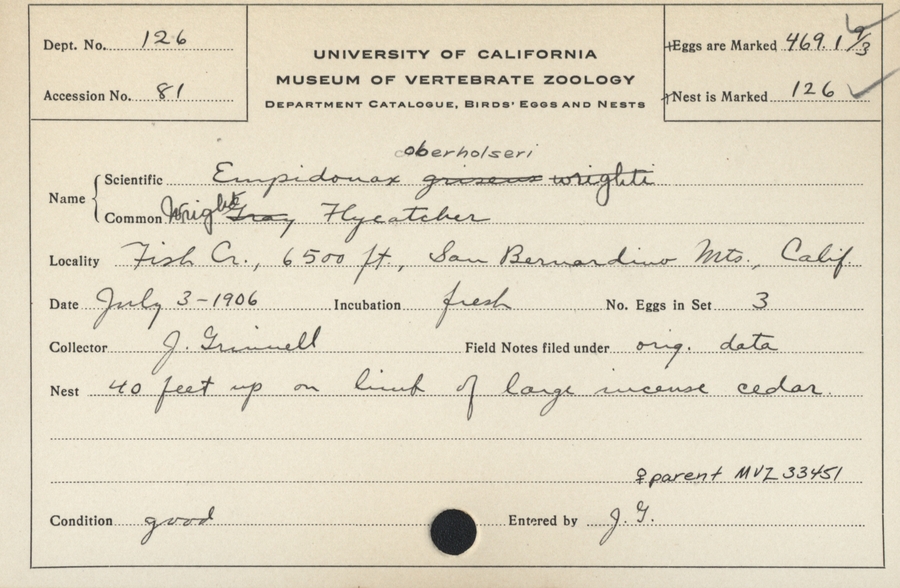 Dept. No. 126
Accession No. 81
UNIVERSITY OF CALIFORNIA
MUSEUM OF VERTEBRATE ZOOLOGY
DEPARTMENT CATALOGUE, BIRDS' EGGS AND NESTS
Eggs are Marked 469.1 9/3
Nest is Marked 126
oberholseri
Name { Scientific Empidonax griseus wrighti
Common Wright Gray Flycatcher
Locality Fish Cr., 6500 ft., San Bernardino Mts., Calif
Date July 3-1906 Incubation fresh No. Eggs in Set 3
Collector J. Grinnell Field Notes filed under orig. data
Nest 40 feet up on limb of large incense cedar.
♀ parent MVZ 33451
Condition good Entered by J.G.